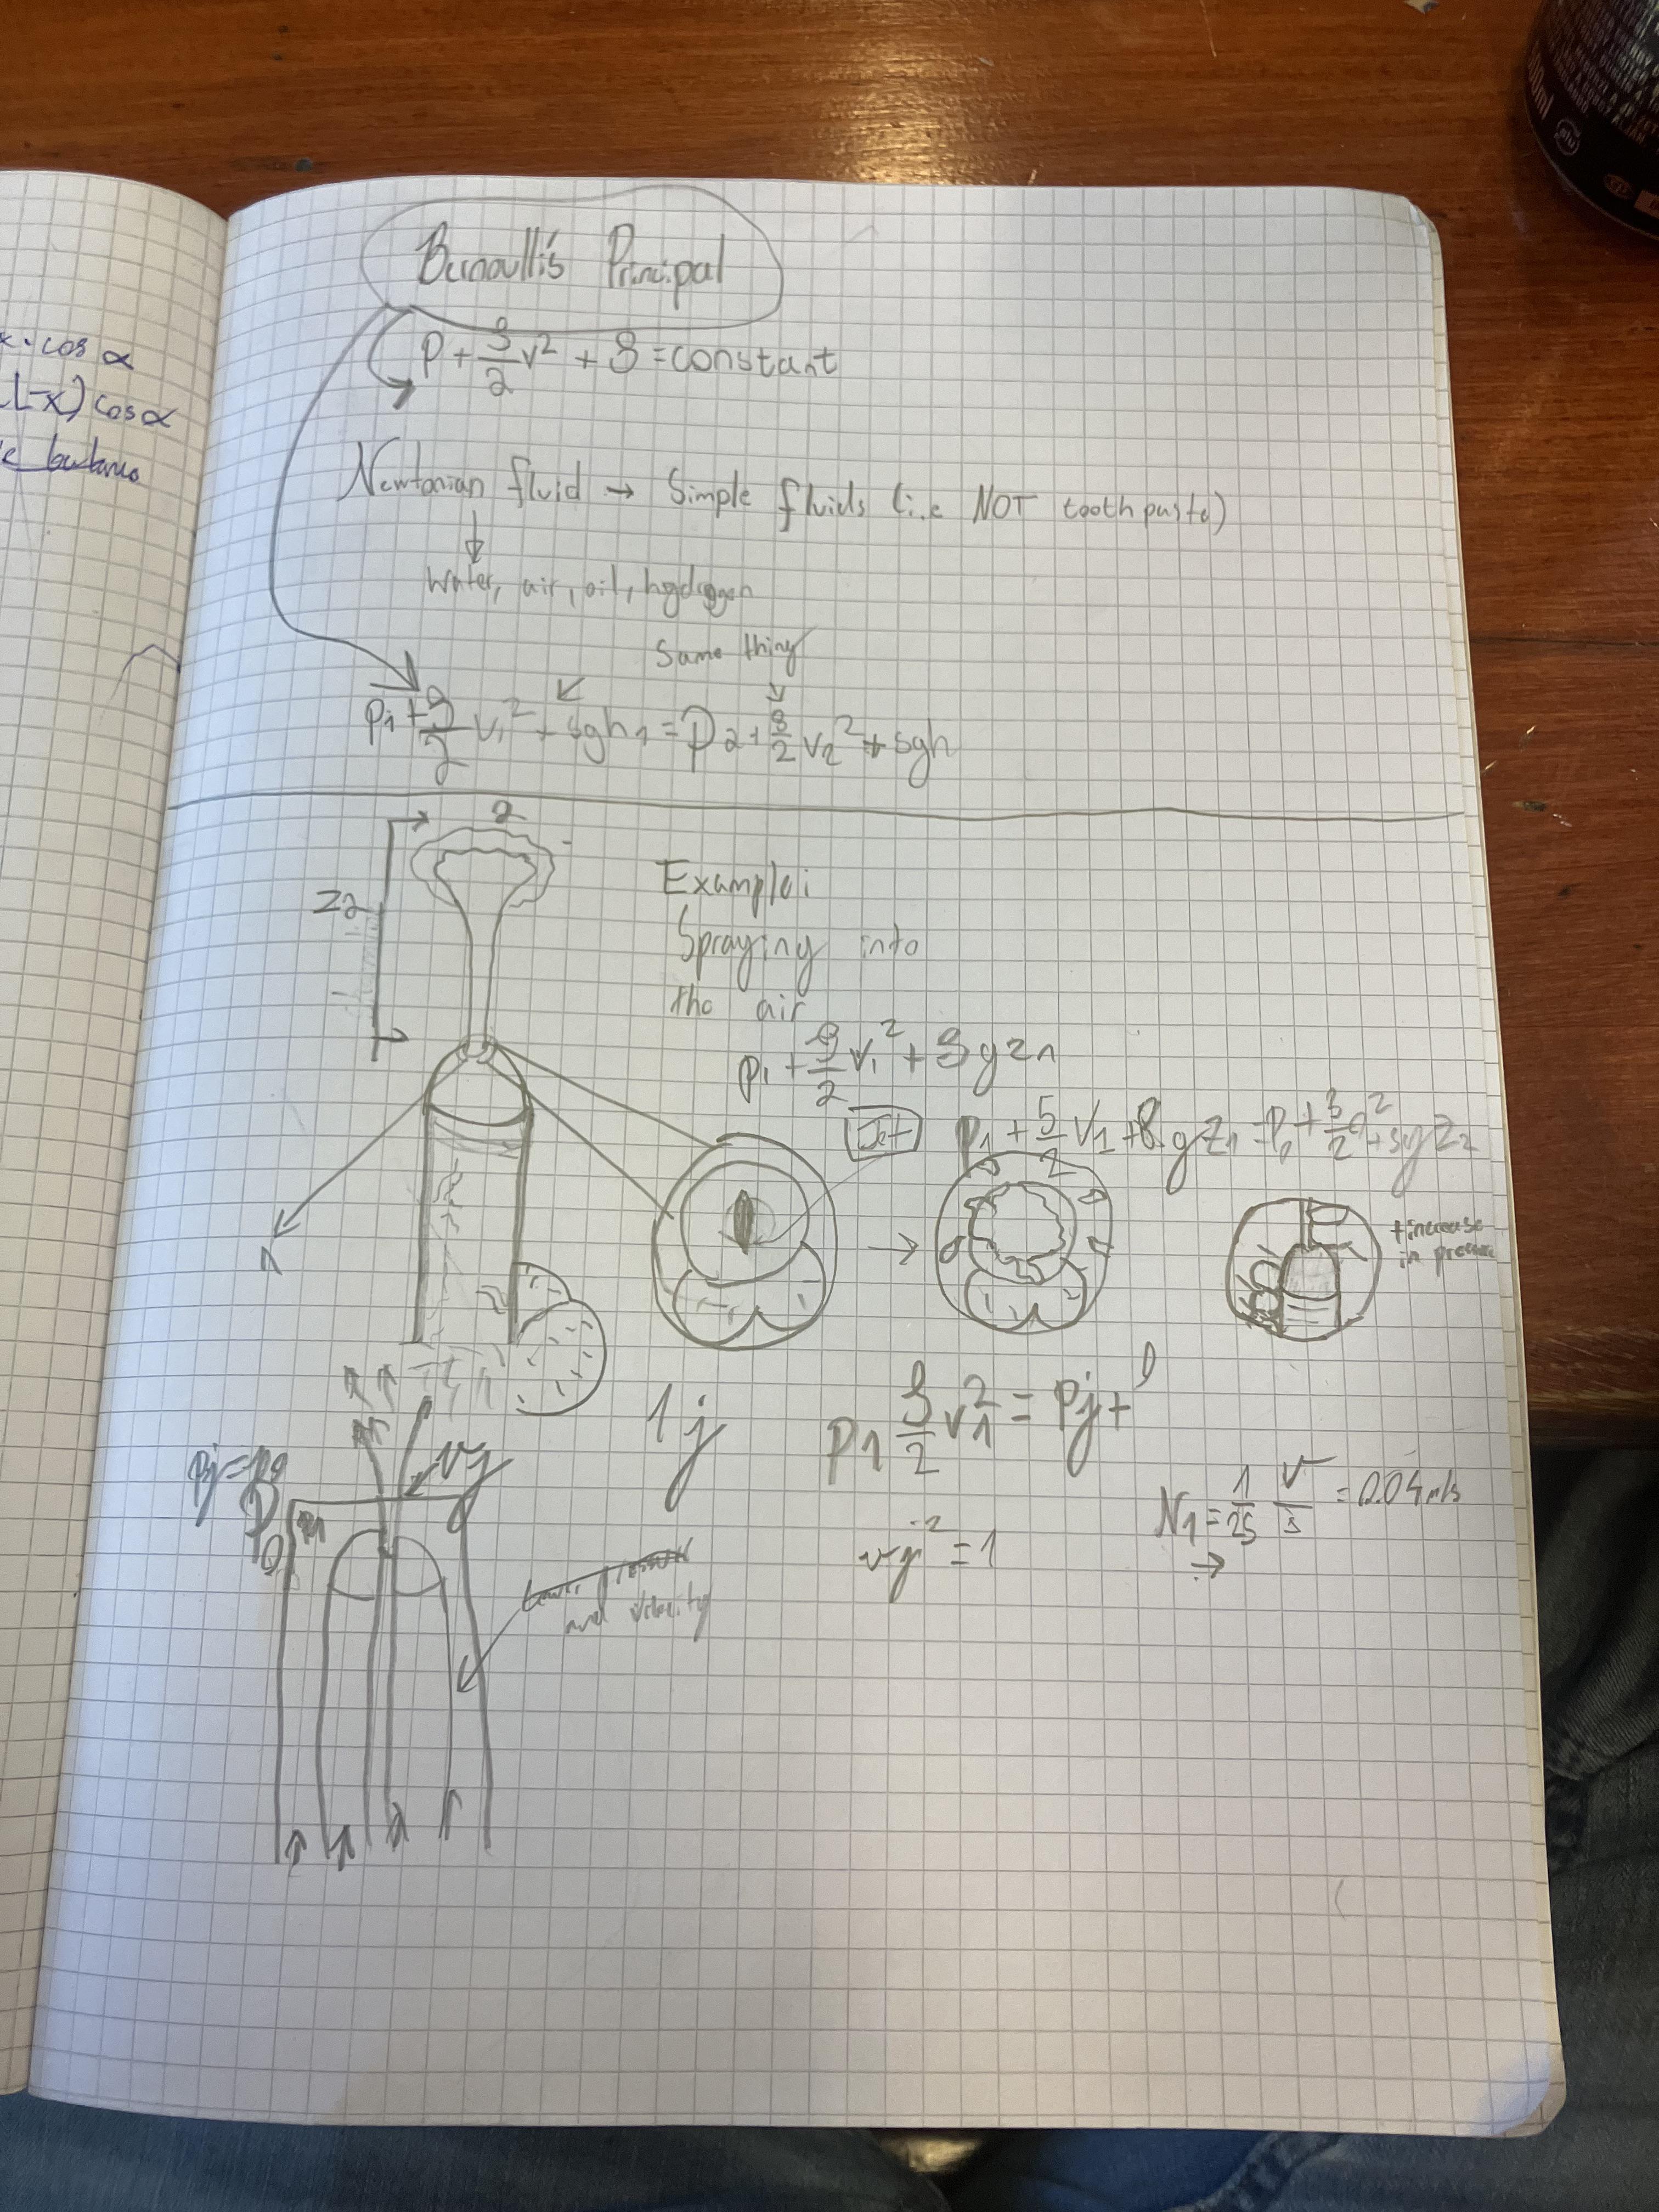 x · cos α
(L-x) cos α
Bernoulli's Principal
p + ρ/2 v² + ρ = constant
Newtonian fluid → Simple fluids (i.e NOT toothpaste)
Water, air, oil, hydrogen
Same thing
p₁ + ρ/2 v₁² + ρgh₁ = p₂ + ρ/2 v₂² + ρgh
2
Z2
Example:
Spraying into
the air
p₁ + ρ/2 v₁² + ρ g z₁
Jet
p₁ + ρ/2 v₁ + ρ g z₁ = p₀ + ρ/2 0² + ρg z₂
+ increase
in pressure
1
1 j
p1 ρ/2 v₁² = pj +
pj = p0
vj
p0
vj² = 1
= 1/25 = 0.04 m/s
Lower pressure
and velocity